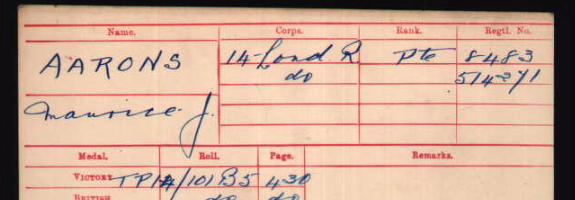 Name. Corps. Rank. Regtl. No.
AARONS 14-Lond R Pte 8483
do 514271
Maurice J.
Medal. Roll. Page. Remarks.
VICTORY TP14/101B5 430
BRITISH do do